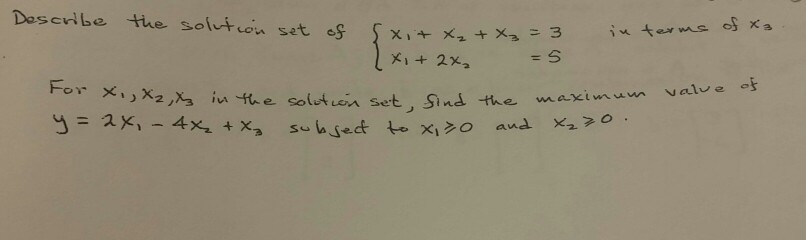 Describe the solution set of { x₁ + x₂ + x₃ = 3 in terms of x₃
x₁ + 2x₂ = 5
For x₁, x₂, x₃ in the solution set, find the maximum value of
y = 2x₁ - 4x₂ + x₃ subject to x₁ ⩾ 0 and x₂ ⩾ 0.